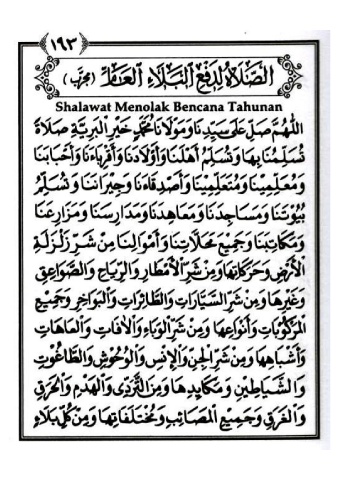 ١٩٣
الصَّلَاةُ لِدَفْعِ الْبَلَاءِ الْعَامِّ (مجرّب)
Shalawat Menolak Bencana Tahunan
اَللّٰهُمَّ صَلِّ عَلَى سَيِّدِنَا وَمَوْلَانَا مُحَمَّدٍ خَيْرِ الْبَرِيَّةِ صَلَاةً
تُسَلِّمُنَا بِهَا وَتُسَلِّمُ أَهْلَنَا وَأَوْلَادَنَا وَأَقْرِبَاءَنَا وَأَحْبَابَنَا
وَمُعَلِّمِيْنَا وَمُتَعَلِّمِيْنَا وَأَصْدِقَاءَنَا وَجِيْرَانَنَا وَتُسَلِّمُ
بُيُوْتَنَا وَمَسَاجِدَنَا وَمَعَاهِدَنَا وَمَدَارِسَنَا وَمَزَارِعَنَا
وَمَكَاتِبَنَا وَجَمِيْعَ مَحَلَّاتِنَا وَأَمْوَالَنَا مِنْ شَرِّ زَلْزَلَةِ
الْأَرْضِ وَحَرَكَاتِهَا وَمِنْ شَرِّ الْأَمْطَارِ وَالرِّيَاحِ وَالصَّوَاعِقِ
وَغَيْرِهَا وَمِنْ شَرِّ السَّيَّارَاتِ وَالطَّائِرَاتِ وَالْبَوَاخِرِ وَجَمِيْعِ
الْمَرْكُوْبَاتِ وَأَنْوَاعِهَا وَمِنْ شَرِّ الْوَبَاءِ وَالْآفَاتِ وَالْعَاهَاتِ
وَأَشْبَاهِهَا وَمِنْ شَرِّ الْجِنِّ وَالْإِنْسِ وَالْوُحُوْشِ وَالطَّاغُوْتِ
وَالشَّيَاطِيْنِ وَمَكَايِدِهَا وَمِنَ التَّرَدِّى وَالْهَدْمِ وَالْحَرَقِ
وَالْغَرَقِ وَجَمِيْعِ الْمَصَائِبِ وَمُخْتَلَفَاتِهَا وَمِنْ كُلِّ بَلَاءٍ